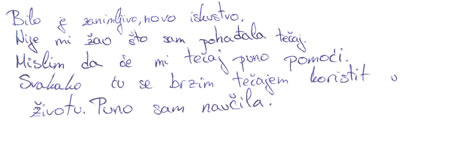 Bilo je zanimljivo, novo iskustvo.
Nije mi žao što sam pohađala tečaj.
Mislim da će mi tečaj puno pomoći.
Svakako ću se brzim tečajem koristit u
životu. Puno sam naučila.